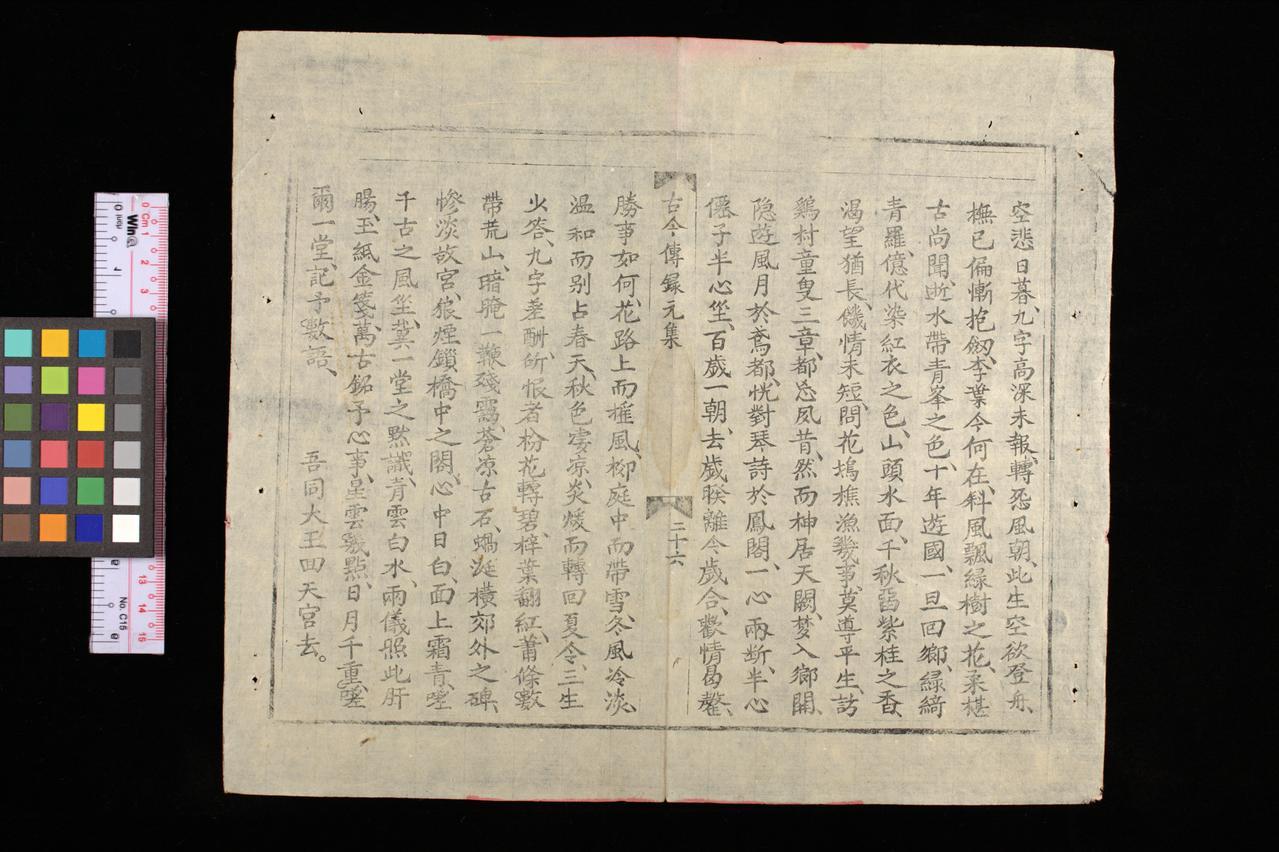 空悲日暮、九字高深未報、轉恐風朝、此生空欲登舟、
撫已偏慚抱劔、李葉今何在、斜風飄綠樹之花、柔椹
古尚聞、逝水帶青峯之色、十年遊國、一旦回鄉、綠綺
青羅、億代染紅衣之色、山頭水面、千秋留紫桂之香、
渴望猶長、饑情未短、問花塢樵漁幾事、莫導平生、訪
鷄村童叟三章、都忘夙昔、然而神居天闕、夢入鄉關、
隐遊風月於鳶都、恍對琴詩於鳳閣、一心兩断、半心
僊子半心坐、百歲一朝、去歲睽離今歲合、歡情曷罄、
古今傳錄元集
二十六
勝事如何、花路上而摧風、柳庭中而帶雪、冬風冷淡
溫和而别占春天、秋色凄凉、炎煖而轉回夏令、三生
火答、九字差酬、所恨者枌花轉碧、梓葉翻紅、蕭條數
帶荒山、暗晻一鞭殘靄、蒼凉古石、蝸涎橫郊外之碑、
慘淡故宮、狼煙鎖橋中之閣、心中日白、面上霜青、嗟
千古之風坐、冀一堂之黙識、青雲白水、兩儀照此肝
腸、玉紙金箋、萬古銘予心事、呈雲幾點、日月千重、嗟
爾一堂、記予數語、
吾同大王回天宮去。
Cm 1 2 3
13 14 15
No. C15